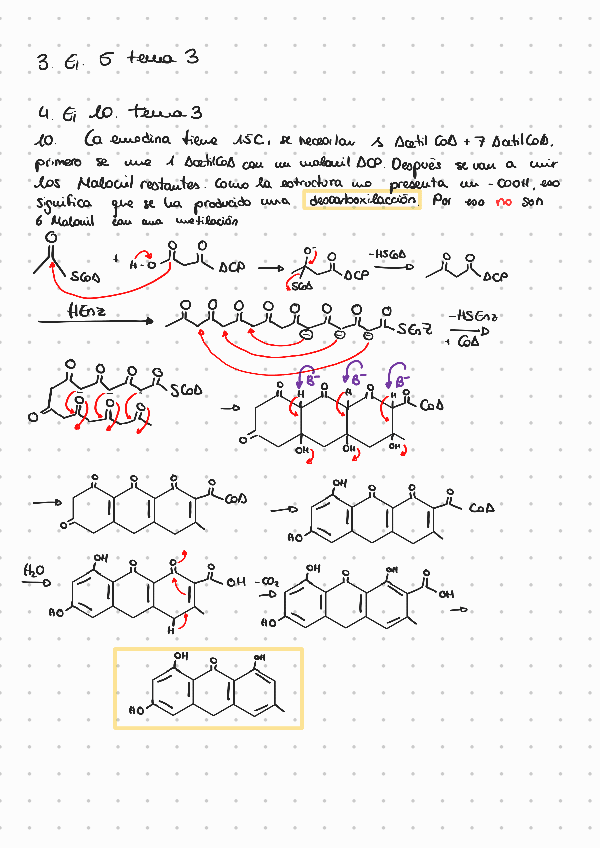 3. Ej. 5 tema 3
4. Ej 10. tema 3
10. La emodina tiene 15C, se necesitan 1 Acetil CoA + 7 Acetil CoA,
primero se une 1 AcetilCoA con un malonil ACP. Después se van a unir
los Malonil restantes. Como la estructura no presenta un -COOH, eso
significa que se ha producido una descarboxilacción. Por eso no son
6 Malonil con una metilación
O O O O O-
SCoA + H-O ACP → SCoA ACP -HSCoA → ACP
HEnz → O O O O O O O O SEnz -HSEnz + CoA
O O O O SCoA O O O O → B- B- B- O O O O CoA O OH OH OH H H H
→ O O O O CoA O → OH O O O CoA HO
H2O → OH O O O OH HO H -CO2 → OH O OH O OH HO →
OH O OH
HO